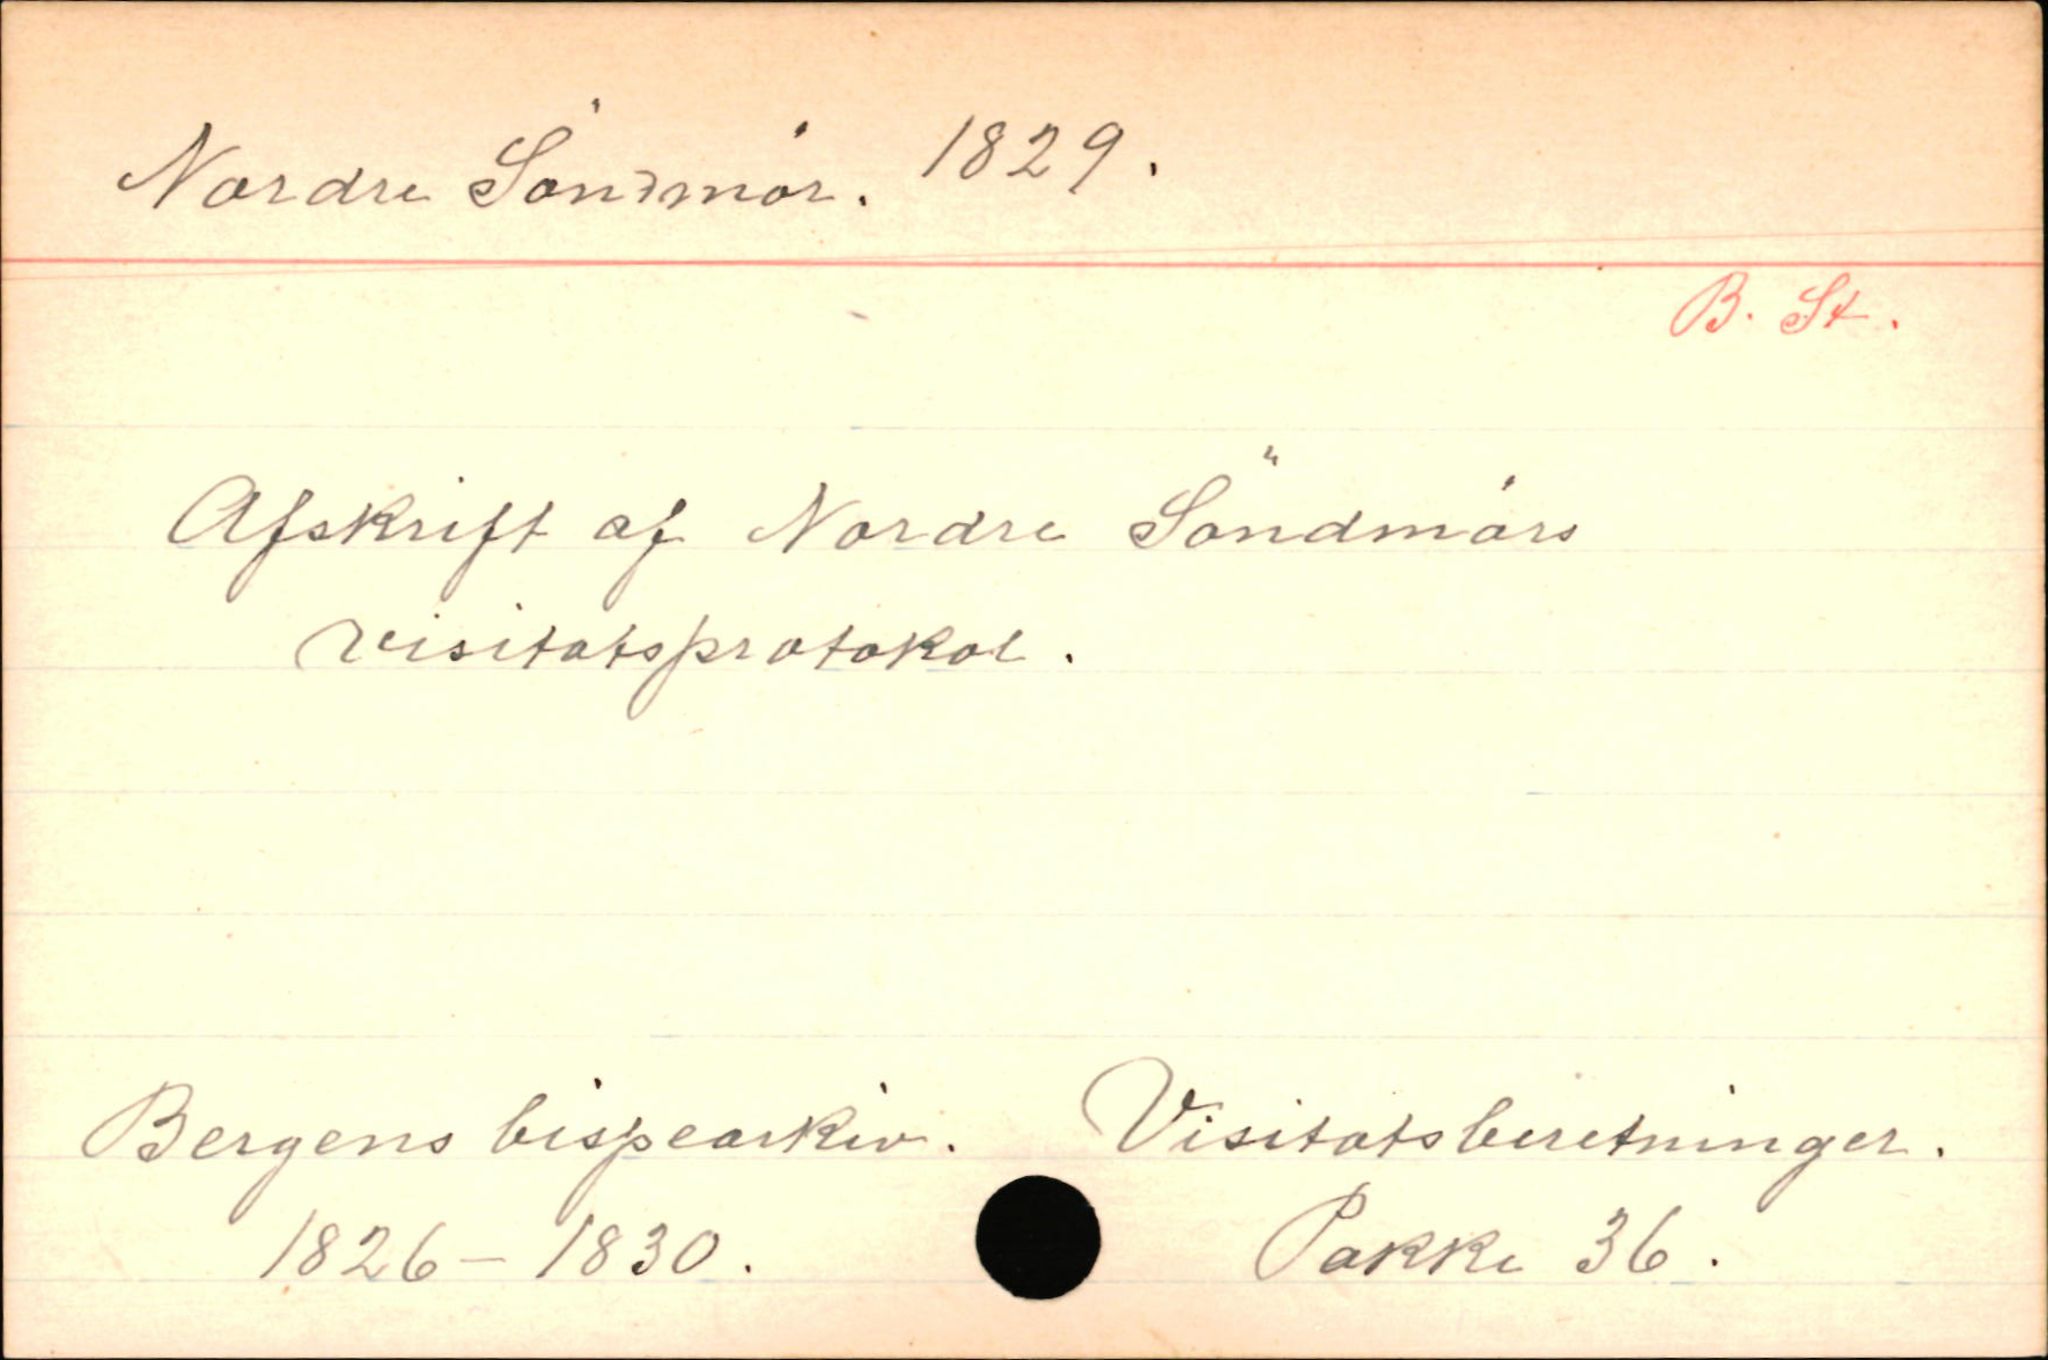 Nordre Söndmör. 1829.
B. St.
Afskrift af Nordre Söndmörs
visitatsprotokol.
Bergens bispearkiv. Visitatsberetninger.
1826-1830. Pakke 36.